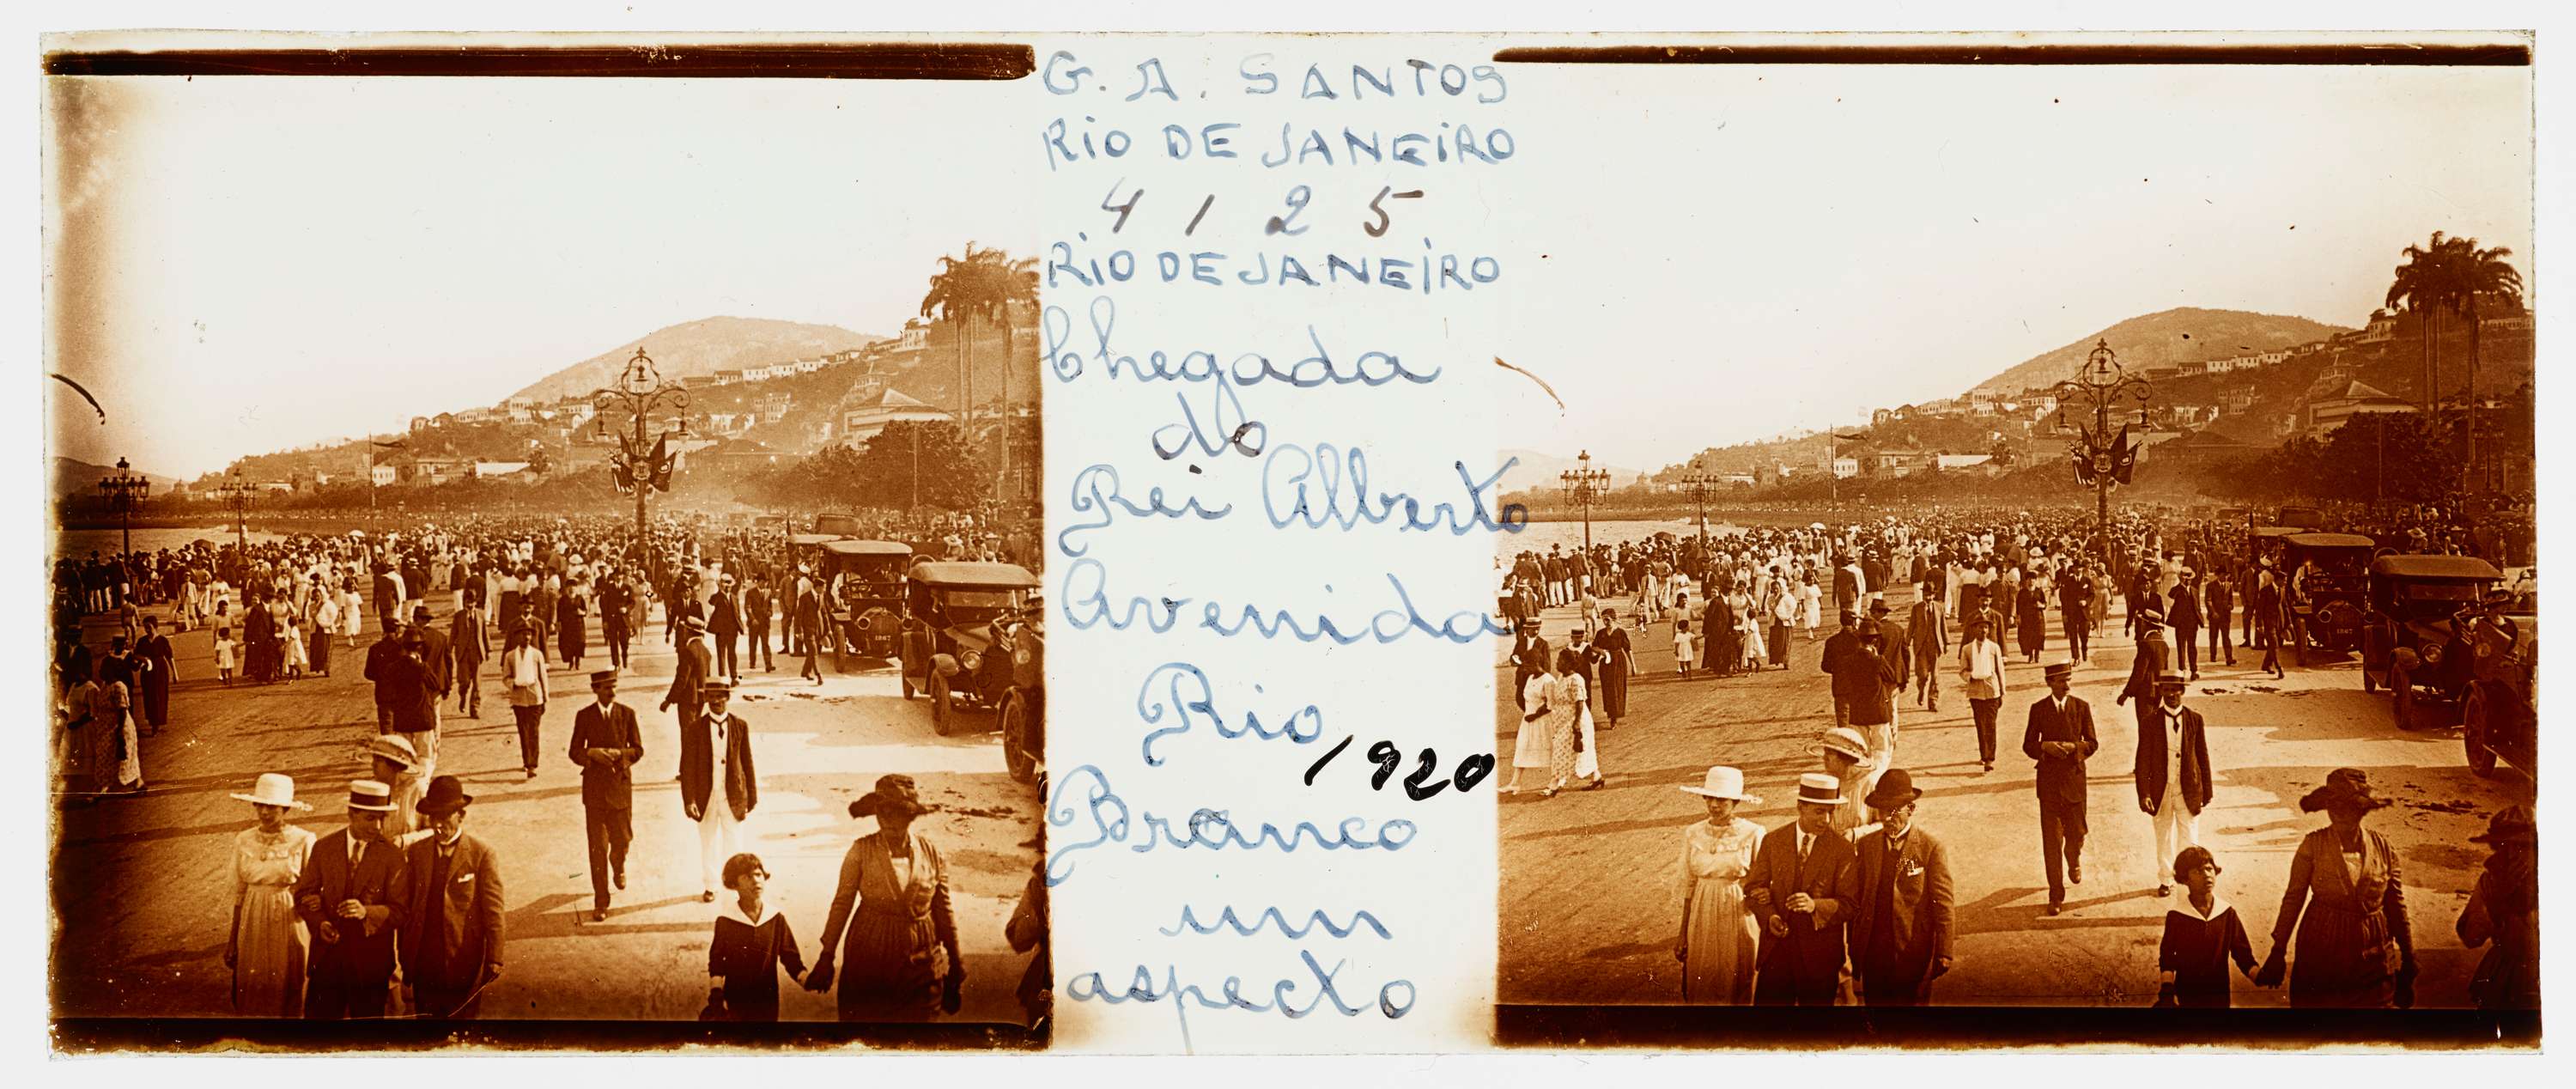 G. A. SANTOS
RIO DE JANEIRO
4125
RIO DE JANEIRO
Chegada
do
Rei Alberto
Avenida
Rio
1920
Branco
um
aspecto
1867